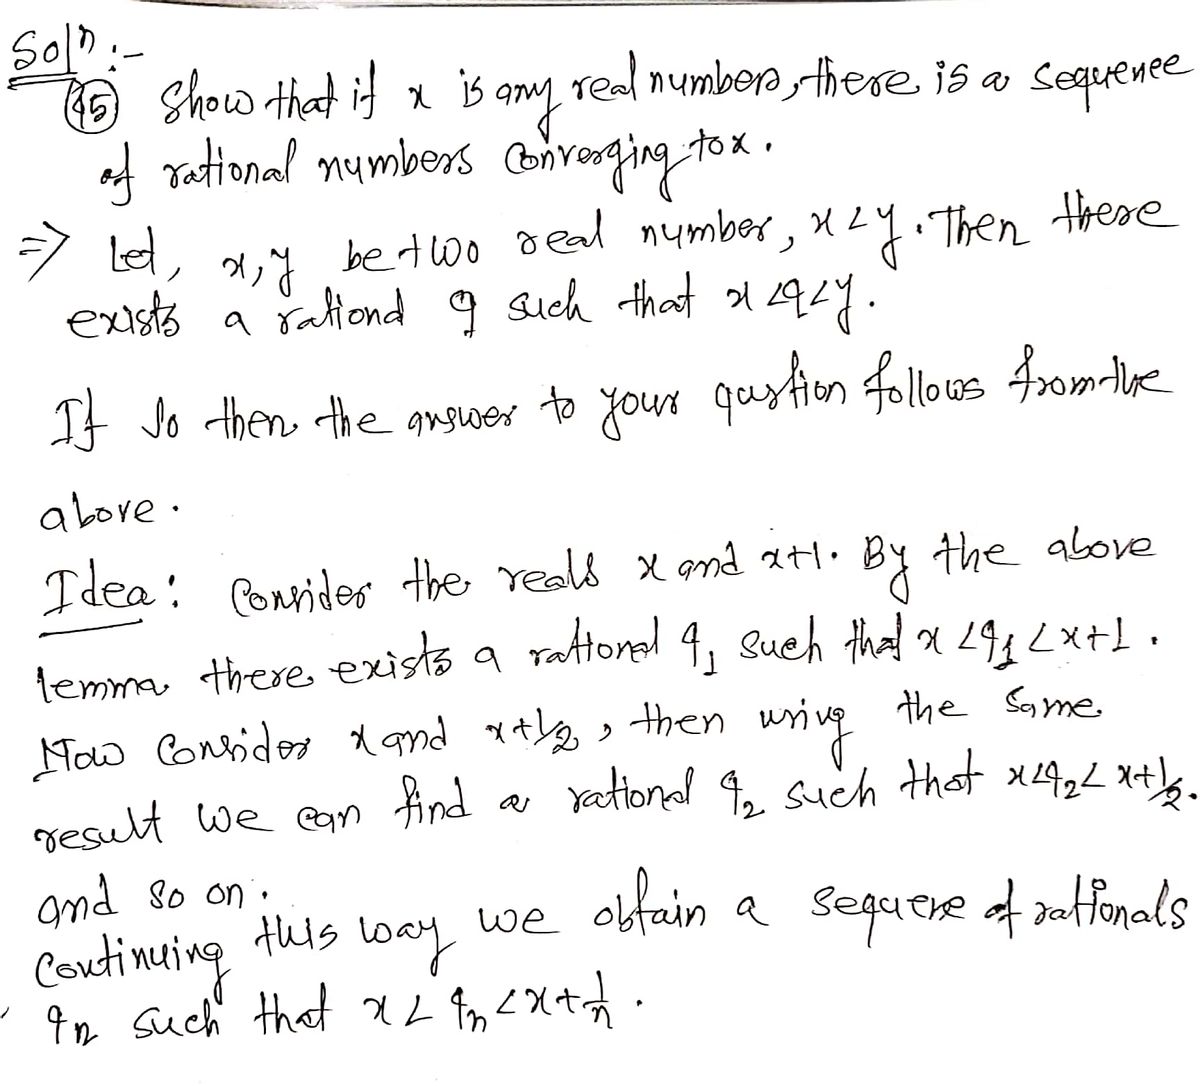 Solⁿ :-
(45) Show that if x is any real numbers, there is a sequence
of rational numbers converging to x.
⇒ Let, x, y be two real number, x < y. Then there
exists a rationd q such that x < q < y.
If so then the answer to your qustion follows from the
above.
Idea: Consider the reals x and x+1. By the above
lemma there exists a rational q₁ such that x < q₁ < x+1.
Now consider x and x+1/2, then using the same
result we can find a rational q₂ such that x < q₂ < x+1/2.
and so on.
Continuing this way we obtain a sequene of rationals
qn such that x < qn < x + 1/n.